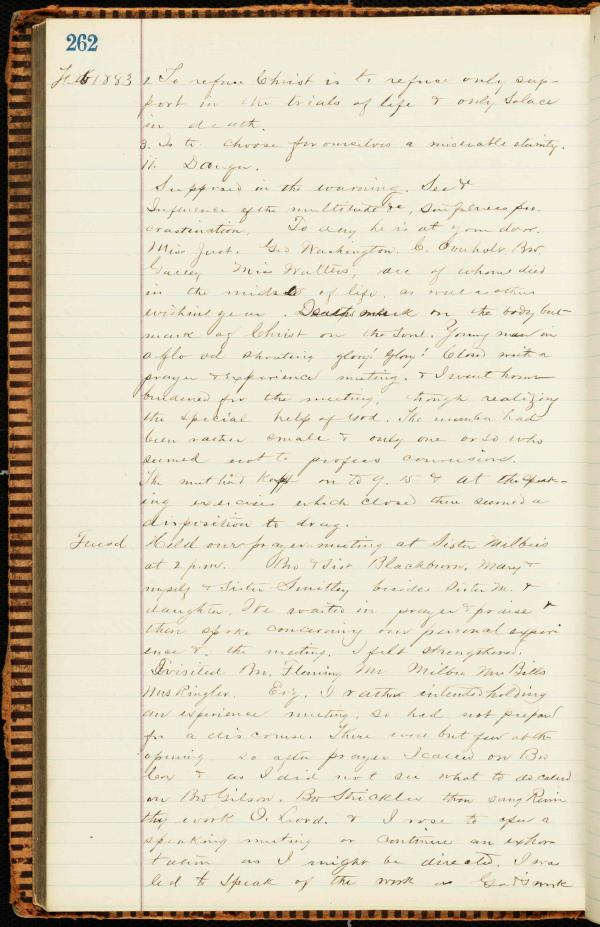 262
Feb 1883 2 To refuse Christ is to refuse only sup-
port in the trials of life & only Solace
in death.
3. Is to choose for ourselves a miserable eternity.
II. Danger.
Supposed in the warning. See
Influence of the multitude &c,
crastination. To day he is at your door.
Miss Just. Geo Washington. C. Overholt, Bro.
Miss Walters, are of whom died
in the midst of life, as well as other
within year. Deaths mark on the body but
mark of Christ on the Soul. Young man in
a shouting glory! Glory! Closed with a
prayer & experience meeting. & I went home
burdened for the meeting, though realizing
the special help of God. The number had
been rather small & only one or so who
seemed not to profess conversion.
The meet had kept on to 9.15 & at the speak-
ing exercises which closed there seemed a
disposition to drag.
Tuesd Held our prayer-meeting at Sister Milbie's
at 2 p.m. Bro & Sist Blackburn, Mary &
myself & Sister Smithey besides Sister M. &
daughter. We waited in prayer & praise &
then spoke concerning our personal experi
ence & the meeting. I felt strengthened.
I visited Mr. Fleming Mr Milbie Mrs Bills
Mrs Ringler. Evg. I rather intended holding
an experience meeting, so had not prepared
for a discourse. There were but few at the
opening so after prayer I called on Bro
Cox & as I did not see what to do called
on Bro Gilson. Bro Strickler then sang Revive
thy work O Lord. & I rose to open a
speaking meeting or continue an exhor
tation as I might be directed. I was
led to speak of the work as God's work